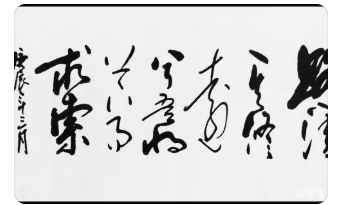 路漫漫
其修
远
兮吾将
上下而
求索
庚辰年三月